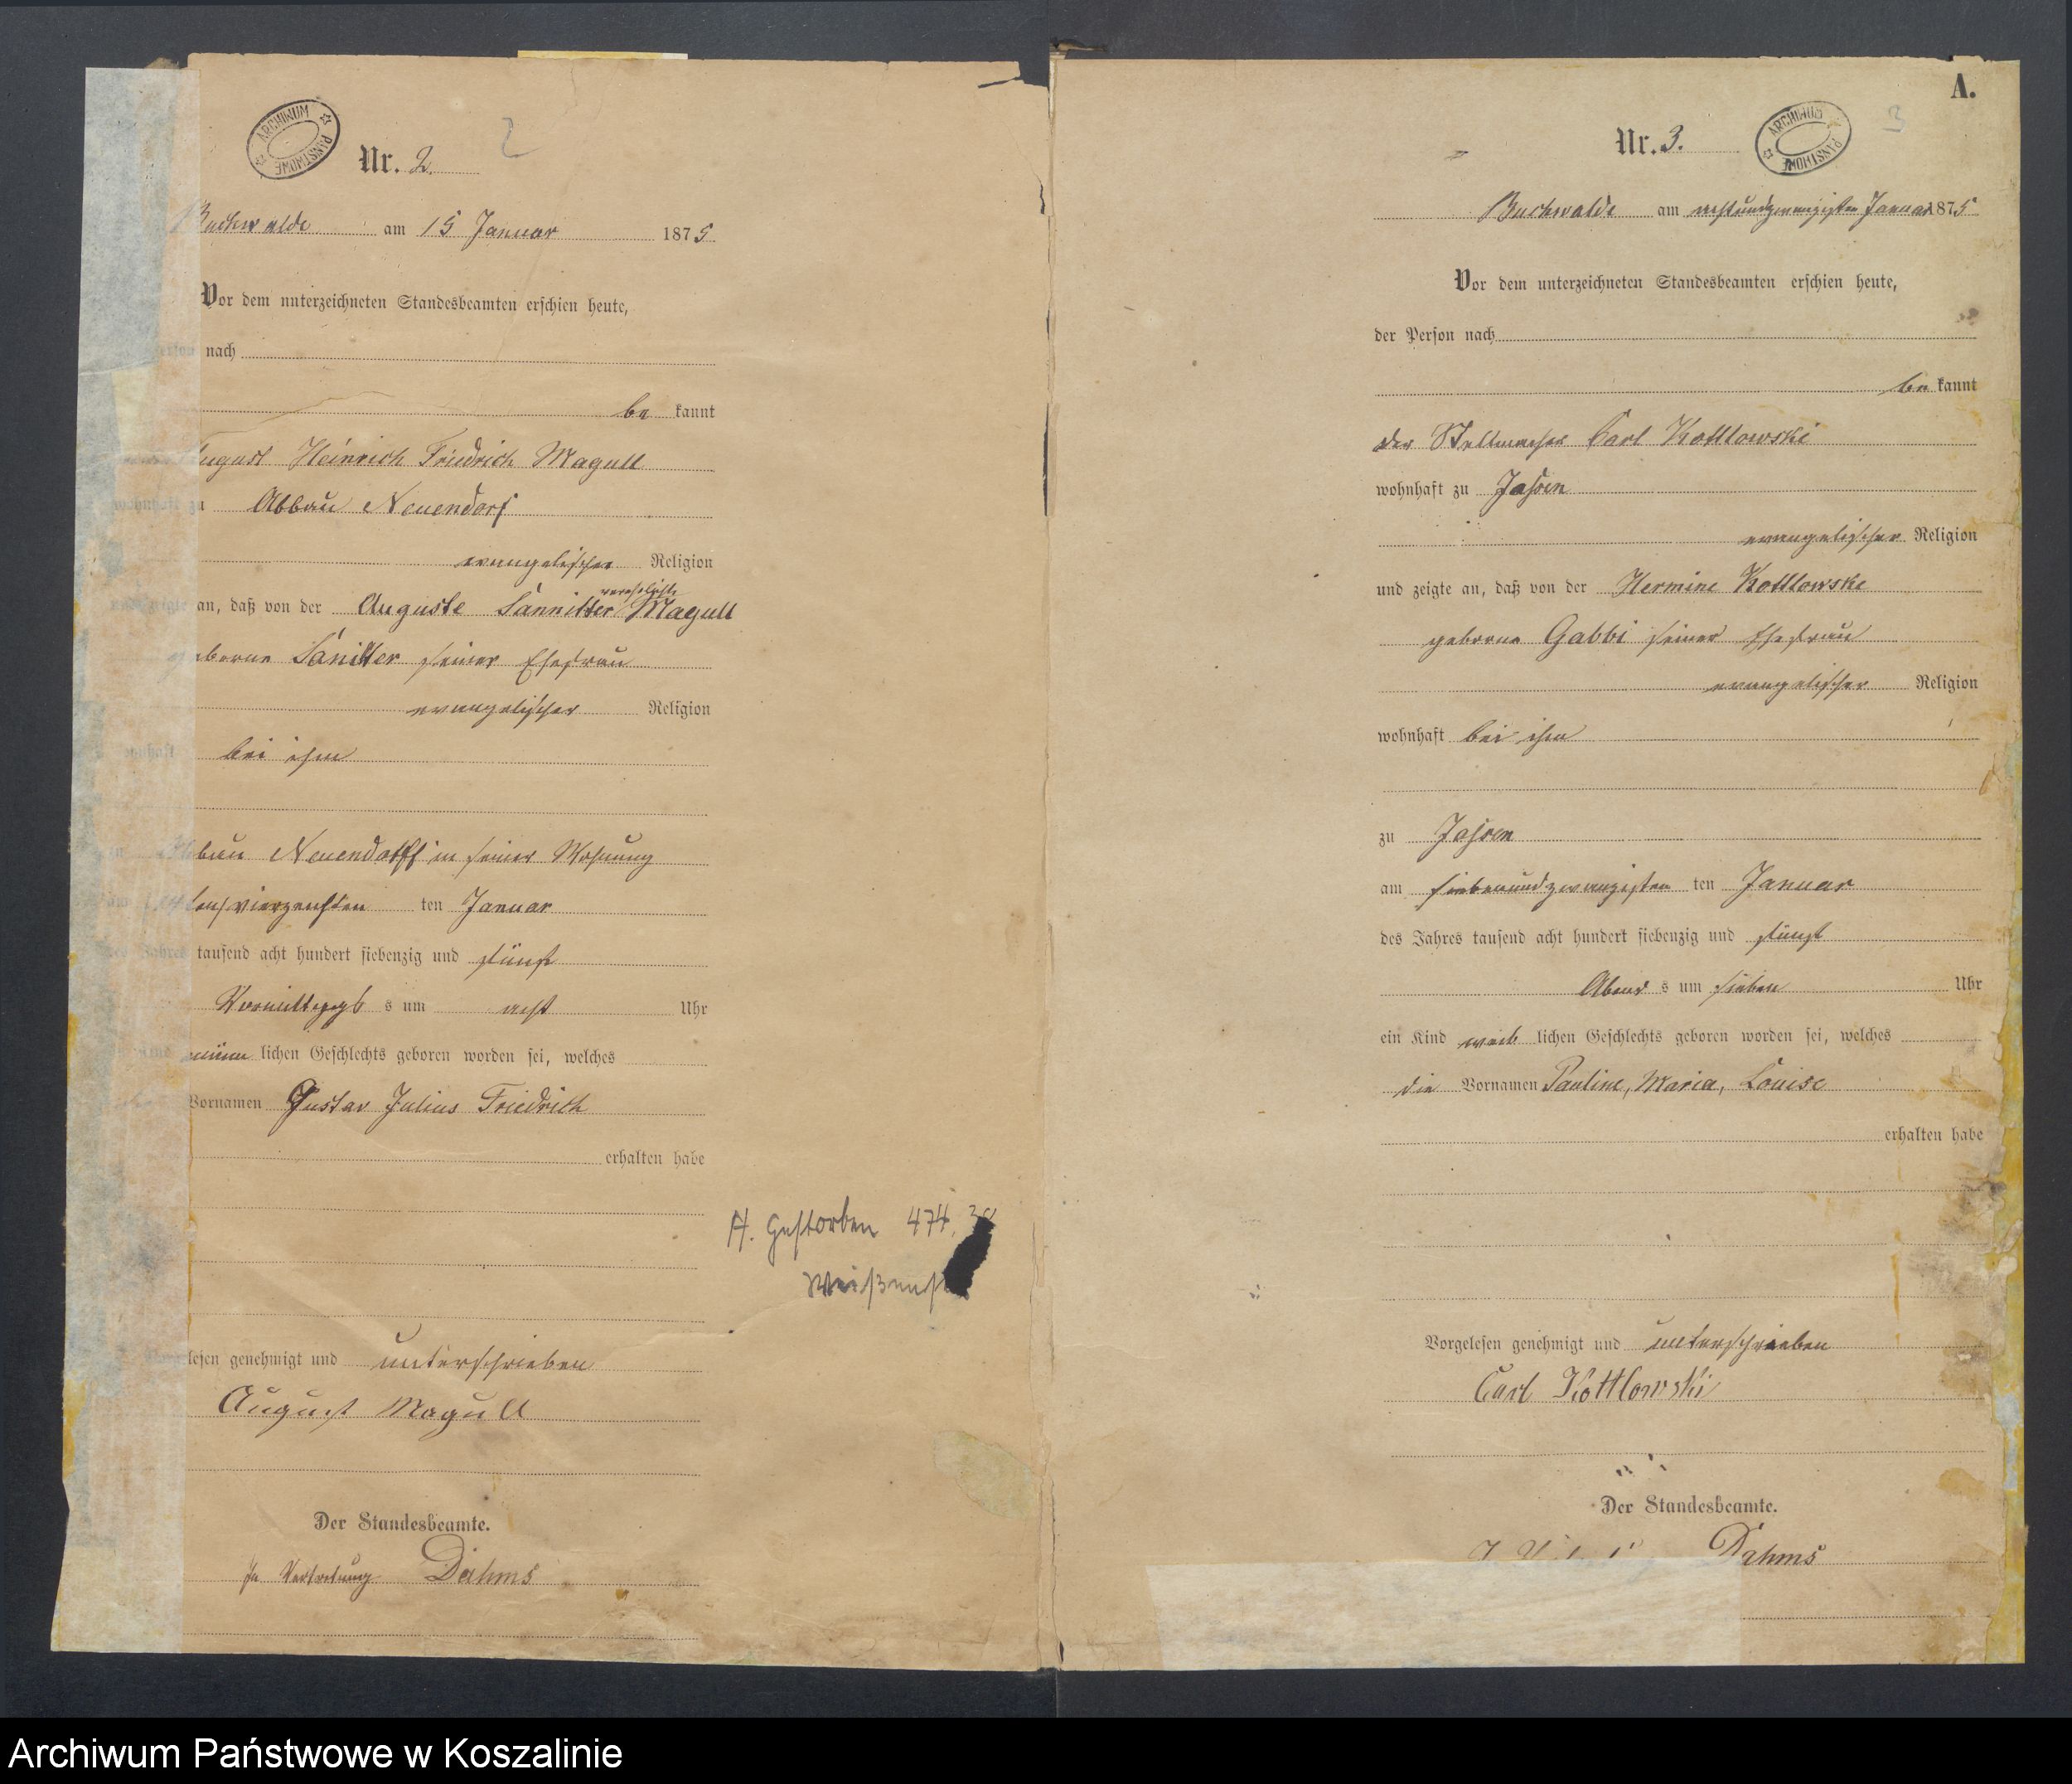 ARCHIWUM PAŃSTWOWE
2
Nr. 2.
Buchwalde am 15 Januar 1875.
Vor dem unterzeichneten Standesbeamten erschien heute,
Person nach
be kannt
August Heinrich Friedrich Magull
wohnhaft zu Abbau Neuendorf
evangelischer Religion
verehelichte
und zeigte an, daß von der Auguste Sannitter Magull
geborne Sanitter seiner Ehefrau
evangelischer Religion
wohnhaft bei ihm
Abbau Neuendorff in seiner Wohnung
vierzenhten ten Januar
des Jahres tausend acht hundert siebenzig und fünf
Vormittags s um acht Uhr
männ lichen Geschlechts geboren worden sei, welches
Vornamen Gustav Julius Friedrich
erhalten habe
gestorben 474
Vorgelesen genehmigt und unterschrieben
August Magull
Der Standesbeamte.
In Vertretung Dahms
A.
ARCHIWUM PAŃSTWOWE
3
Nr. 3.
Buchwalde am achtundzwanzigsten Januar 1875
Vor dem unterzeichneten Standesbeamten erschien heute,
der Person nach
be kannt
der Stellmacher Carl Kottlowski
wohnhaft zu Jassen
evangelischer Religion
und zeigte an, daß von der Hermine Kottlowske
geborne Gabbi seiner Ehefrau
evangelischer Religion
wohnhaft bei ihm
zu Jassen
am siebenundzwanzigsten ten Januar
des Jahres tausend acht hundert siebenzig und fünf
Abend s um sieben Uhr
ein Kind weib lichen Geschlechts geboren worden sei, welches
die Vornamen Pauline, Maria, Louise
erhalten habe
Vorgelesen genehmigt und unterschrieben
Carl Kottlowski
Der Standesbeamte.
Dahms
Archiwum Państwowe w Koszalinie